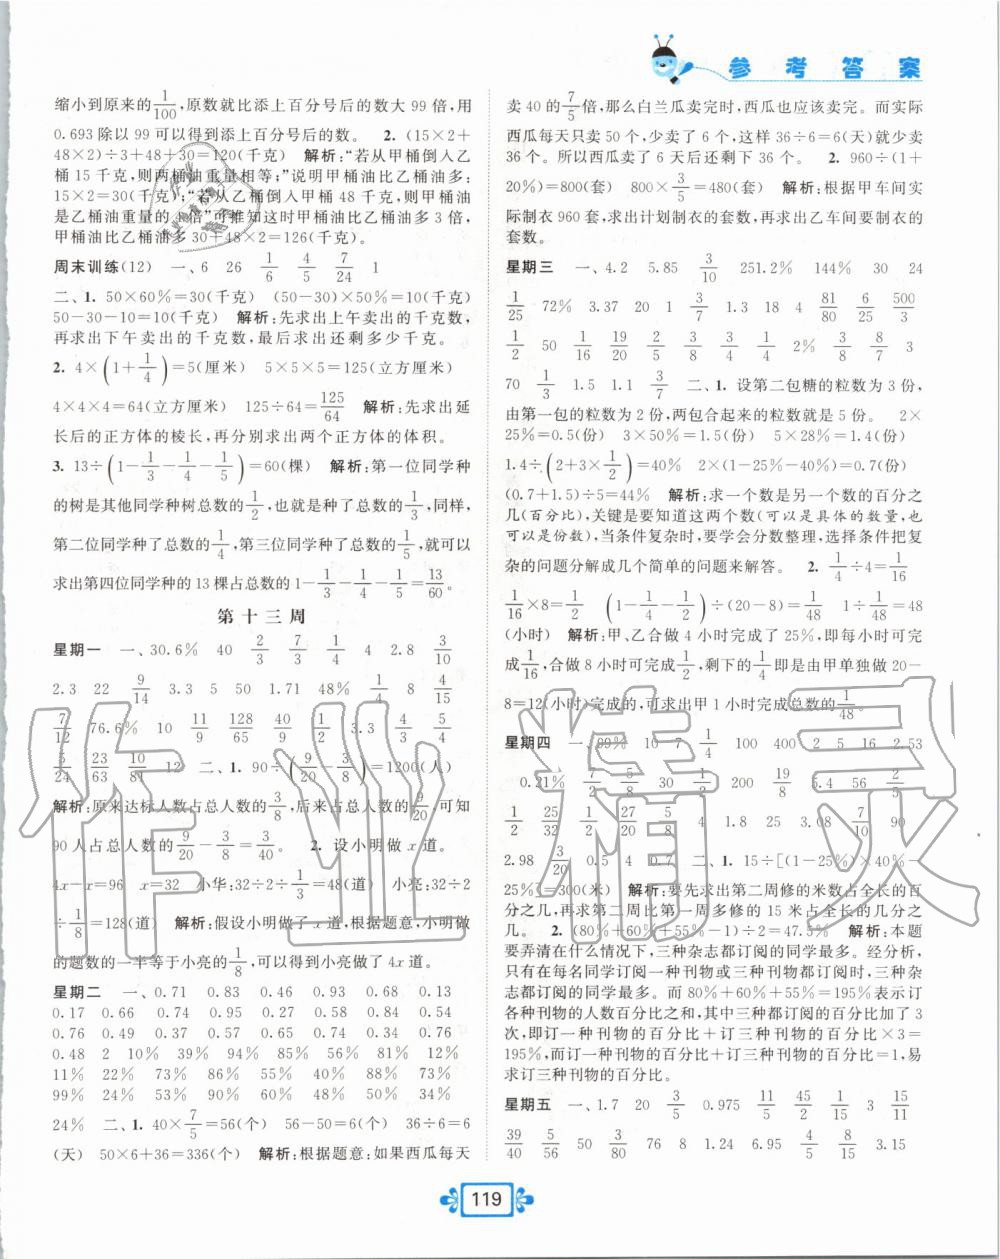 参考答案
缩小到原来的1/100,原数就比添上百分号后的数大 99 倍,用
0.693 除以 99 可以得到添上百分号后的数。 2. (15×2+
48×2)÷3+48+30=120(千克) 解析:“若从甲桶倒入乙
桶 15 千克,则两桶油重量相等;”说明甲桶油比乙桶油多:
15×2=30(千克);“若从乙桶倒入甲桶 48 千克,则甲桶油
是乙桶油重量的 倍”可推知这时甲桶油比乙桶油多 3 倍,
甲桶油比乙桶油多 30+48×2=126(千克)。
周末训练(12) 一、6 26 1/6 4/5 7/24 1
二、1. 50×60%=30(千克) (50-30)×50%=10(千克)
50-30-10=10(千克) 解析:先求出上午卖出的千克数,
再求出下午卖出的千克数,最后求出还剩多少千克。
2. 4×(1+1/4)=5(厘米) 5×5×5=125(立方厘米)
4×4×4=64(立方厘米) 125÷64=125/64 解析:先求出延
长后的正方体的棱长,再分别求出两个正方体的体积。
3. 13÷(1-1/3-1/4-1/5)=60(棵) 解析:第一位同学种
的树是其他同学种树总数的1/2,也就是种了总数的1/3,同样,
第二位同学种了总数的1/4,第三位同学种了总数的1/5,就可以
求出第四位同学种的 13 棵占总数的 1-1/3-1/4-1/5=13/60。
第十三周
星期一 一、30.6% 40 2/3 7/3 1/4 4 2.8 3/10
2.3 22 9/14 3.3 5 50 1.71 48% 1/4 8 4/15
7/12 76.6% 10 11/9 128/65 40/9 1/2 3.3 4/3 5/4
5/24 23/63 10/81 12 二、1. 90÷(9/20-3/8)=1200(人)
解析:原来达标人数占总人数的3/8,后来占总人数的9/20,可知
90 人占总人数的9/20-3/8=3/40。 2. 设小明做 x 道。
4x-x=96 x=32 小华:32÷2÷1/3=48(道) 小亮:32÷2
÷1/8=128(道) 解析:假设小明做了 x 道,根据题意,小明做
的题数的一半等于小亮的1/8,可以得到小亮做了 4x 道。
星期二 一、0.71 0.83 0.46 0.93 0.68 0.13
0.17 0.66 0.74 0.95 0.27 0.58 0.84 0.54
0.76 0.49 0.37 0.51 0.74 0.34 0.16 0.76
0.48 2 10% 39% 94% 85% 56% 81% 12%
11% 22% 73% 86% 32% 40% 88% 73%
99% 24% 53% 90% 60% 48% 50% 34%
24% 二、1. 40×7/5=56(个) 56-50=6(个) 36÷6=6
(天) 50×6+36=336(个) 解析:根据题意:如果西瓜每天
卖 40 的7/5倍,那么白兰瓜卖完时,西瓜也应该卖完。而实际
西瓜每天只卖 50 个,少卖了 6 个,这样 36÷6=6(天)就少卖
36 个。所以西瓜卖了 6 天后还剩下 36 个。 2. 960÷(1+
20%)=800(套) 800×3/5=480(套) 解析:根据甲车间实
际制衣 960 套,求出计划制衣的套数,再求出乙车间要制衣的
套数。
星期三 一、4.2 5.85 3/10 251.2% 144% 30 24
1/25 72% 3.37 20 1 3/7 1.3 18 4 81/80 6/25 500/3
1/2 50 1/16 19/20 2/5 3/8 3/4 1/4 2% 3/8 8/7 3
70 1/3 1.5 1.1 3/7 二、1. 设第二包糖的粒数为 3 份,
由第一包的粒数为 2 份,两包合起来的粒数就是 5 份。 2×
25%=0.5(份) 3×50%=1.5(份) 5×28%=1.4(份)
1.4÷(2+3×1/2)=40% 2×(1-25%-40%)=0.7(份)
(0.7+1.5)÷5=44% 解析:求一个数是另一个数的百分之
几(百分比),关键是要知道这两个数(可以是具体的数量,也
可以是份数),当条件复杂时,要学会分数整理,选择条件把复
杂的问题分解成几个简单的问题来解答。 2. 1/4÷4=1/16
1/16×8=1/2 (1-1/4-1/2)÷(20-8)=1/48 1÷1/48=48
(小时) 解析:甲、乙合做 4 小时完成了 25%,即每小时可完
成1/16,合做 8 小时可完成1/2,剩下的1/4即是由甲单独做 20-
8=12(小时)完成的,可求出甲 1 小时完成总数的1/48。
星期四 一、99% 10 7 1/4 100 400 2 5 16 2.53
0.21% 7/2 5/8 30 200 19/8 5.4 56
1/2 25/32 1/4 27/20 5/8 4 1.8 25 3.08 7/10 90
2.98 3/20 0.5 4 0.7 二、1. 15÷[(1-25%)×40%-
25%]=300(米) 解析:要先求出第二周修的米数占全长的百
分之几,再求第二周比第一周多修的 15 米占全长的百分之
几。 2. (80%+60%+55%-1)÷2=47.5% 解析:本题
要弄清在什么情况下,三种杂志都订阅的同学最多。经分析,
只有在每名同学订阅一种刊物或三种刊物都订阅时,三种杂
志都订阅的同学最多。而 80%+60%+55%=195%表示订
各种刊物的人数百分比之和,其中三种都订阅的百分比加了 3
次,即订一种刊物的百分比+订三种刊物的百分比×3=
195%,而订一种刊物的百分比+订三种刊物的百分比=1,易
求订三种刊物的百分比。
星期五 一、1.7 20 3/5 0.975 11/5 45/2 1/15 3 15/11
39/40 5/56 50 3/80 76 8 1.24 6.95 4/5 8/15 3.15
119
作业精灵